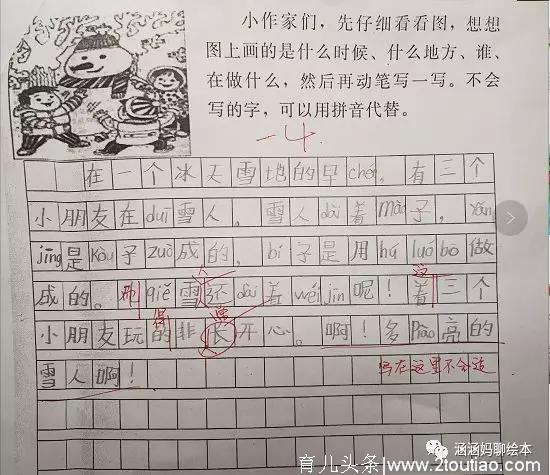 小作家们，先仔细看看图，想想
图上画的是什么时候、什么地方、谁、
在做什么，然后再动笔写一写。不会
写的字，可以用拼音代替。
-4
在一个冰天雪地的早chén，有三个
小朋友在duī雪人，雪人dài着Mào子，Yǎn
jīng是Kòu子zuò成的，bí子是用hú luó bō做
成的。而qiě雪人还dài着wéi jīn呢！这着三个
小朋友玩的得非长常开心。啊！多Piào亮的
雪人啊！
写在这里不合适
涵涵妈聊绘本
育儿头条/www.2loutiao.com